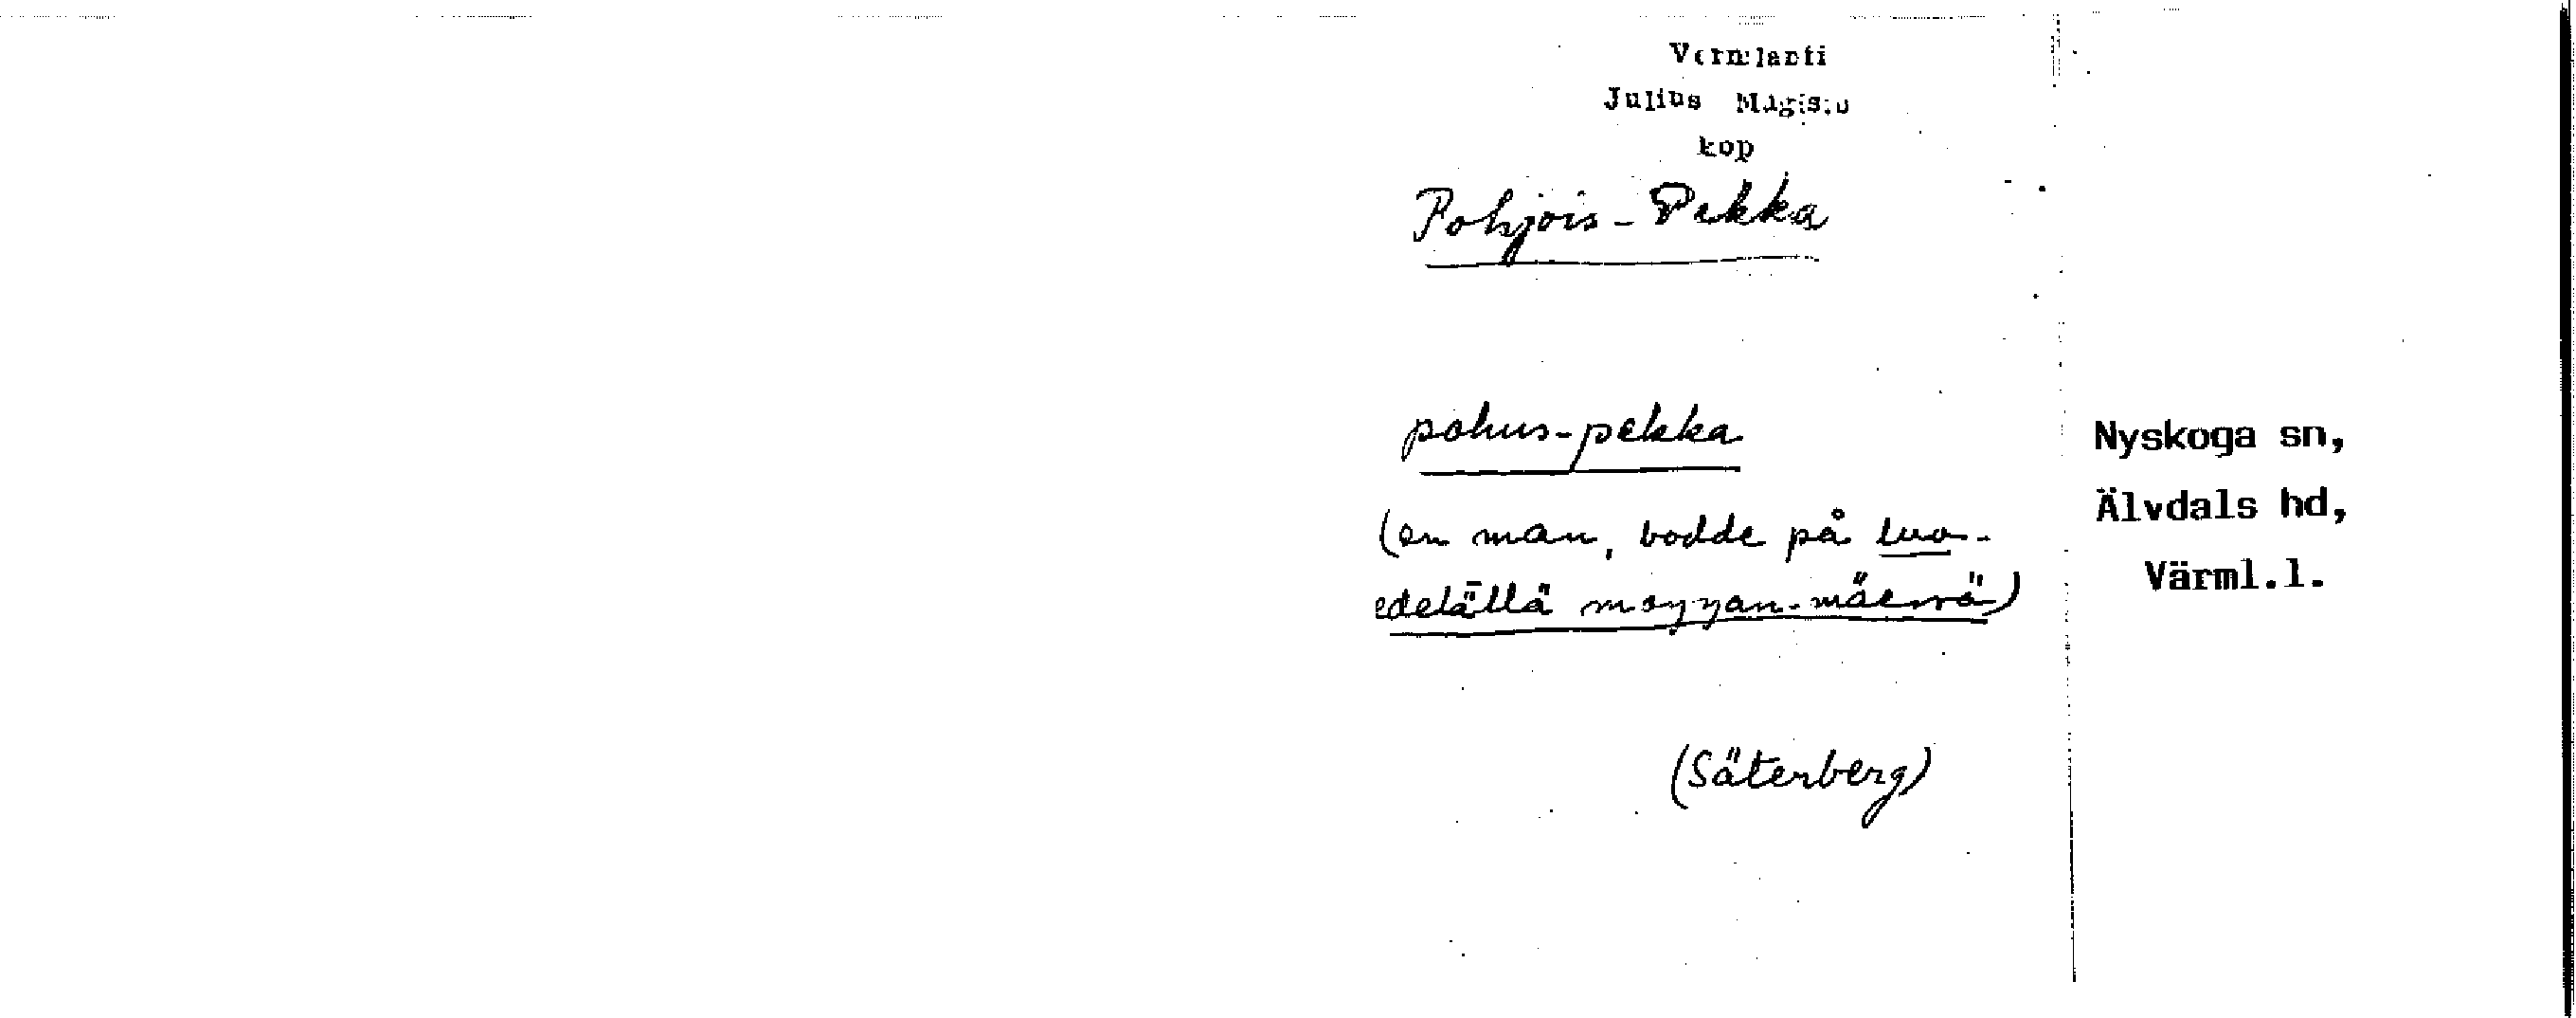 Vermlanti
Julius Mägiste
kop
Pohjois-Pekka
pohus-pekka
(en man, bodde på luo-
edelällä moyyan-mäessä)
(Säterberg)
Nyskoga sn,
Älvdals hd,
Värml.l.